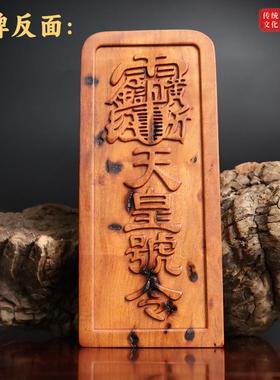 牌反面:
传统
文化
天皇號令